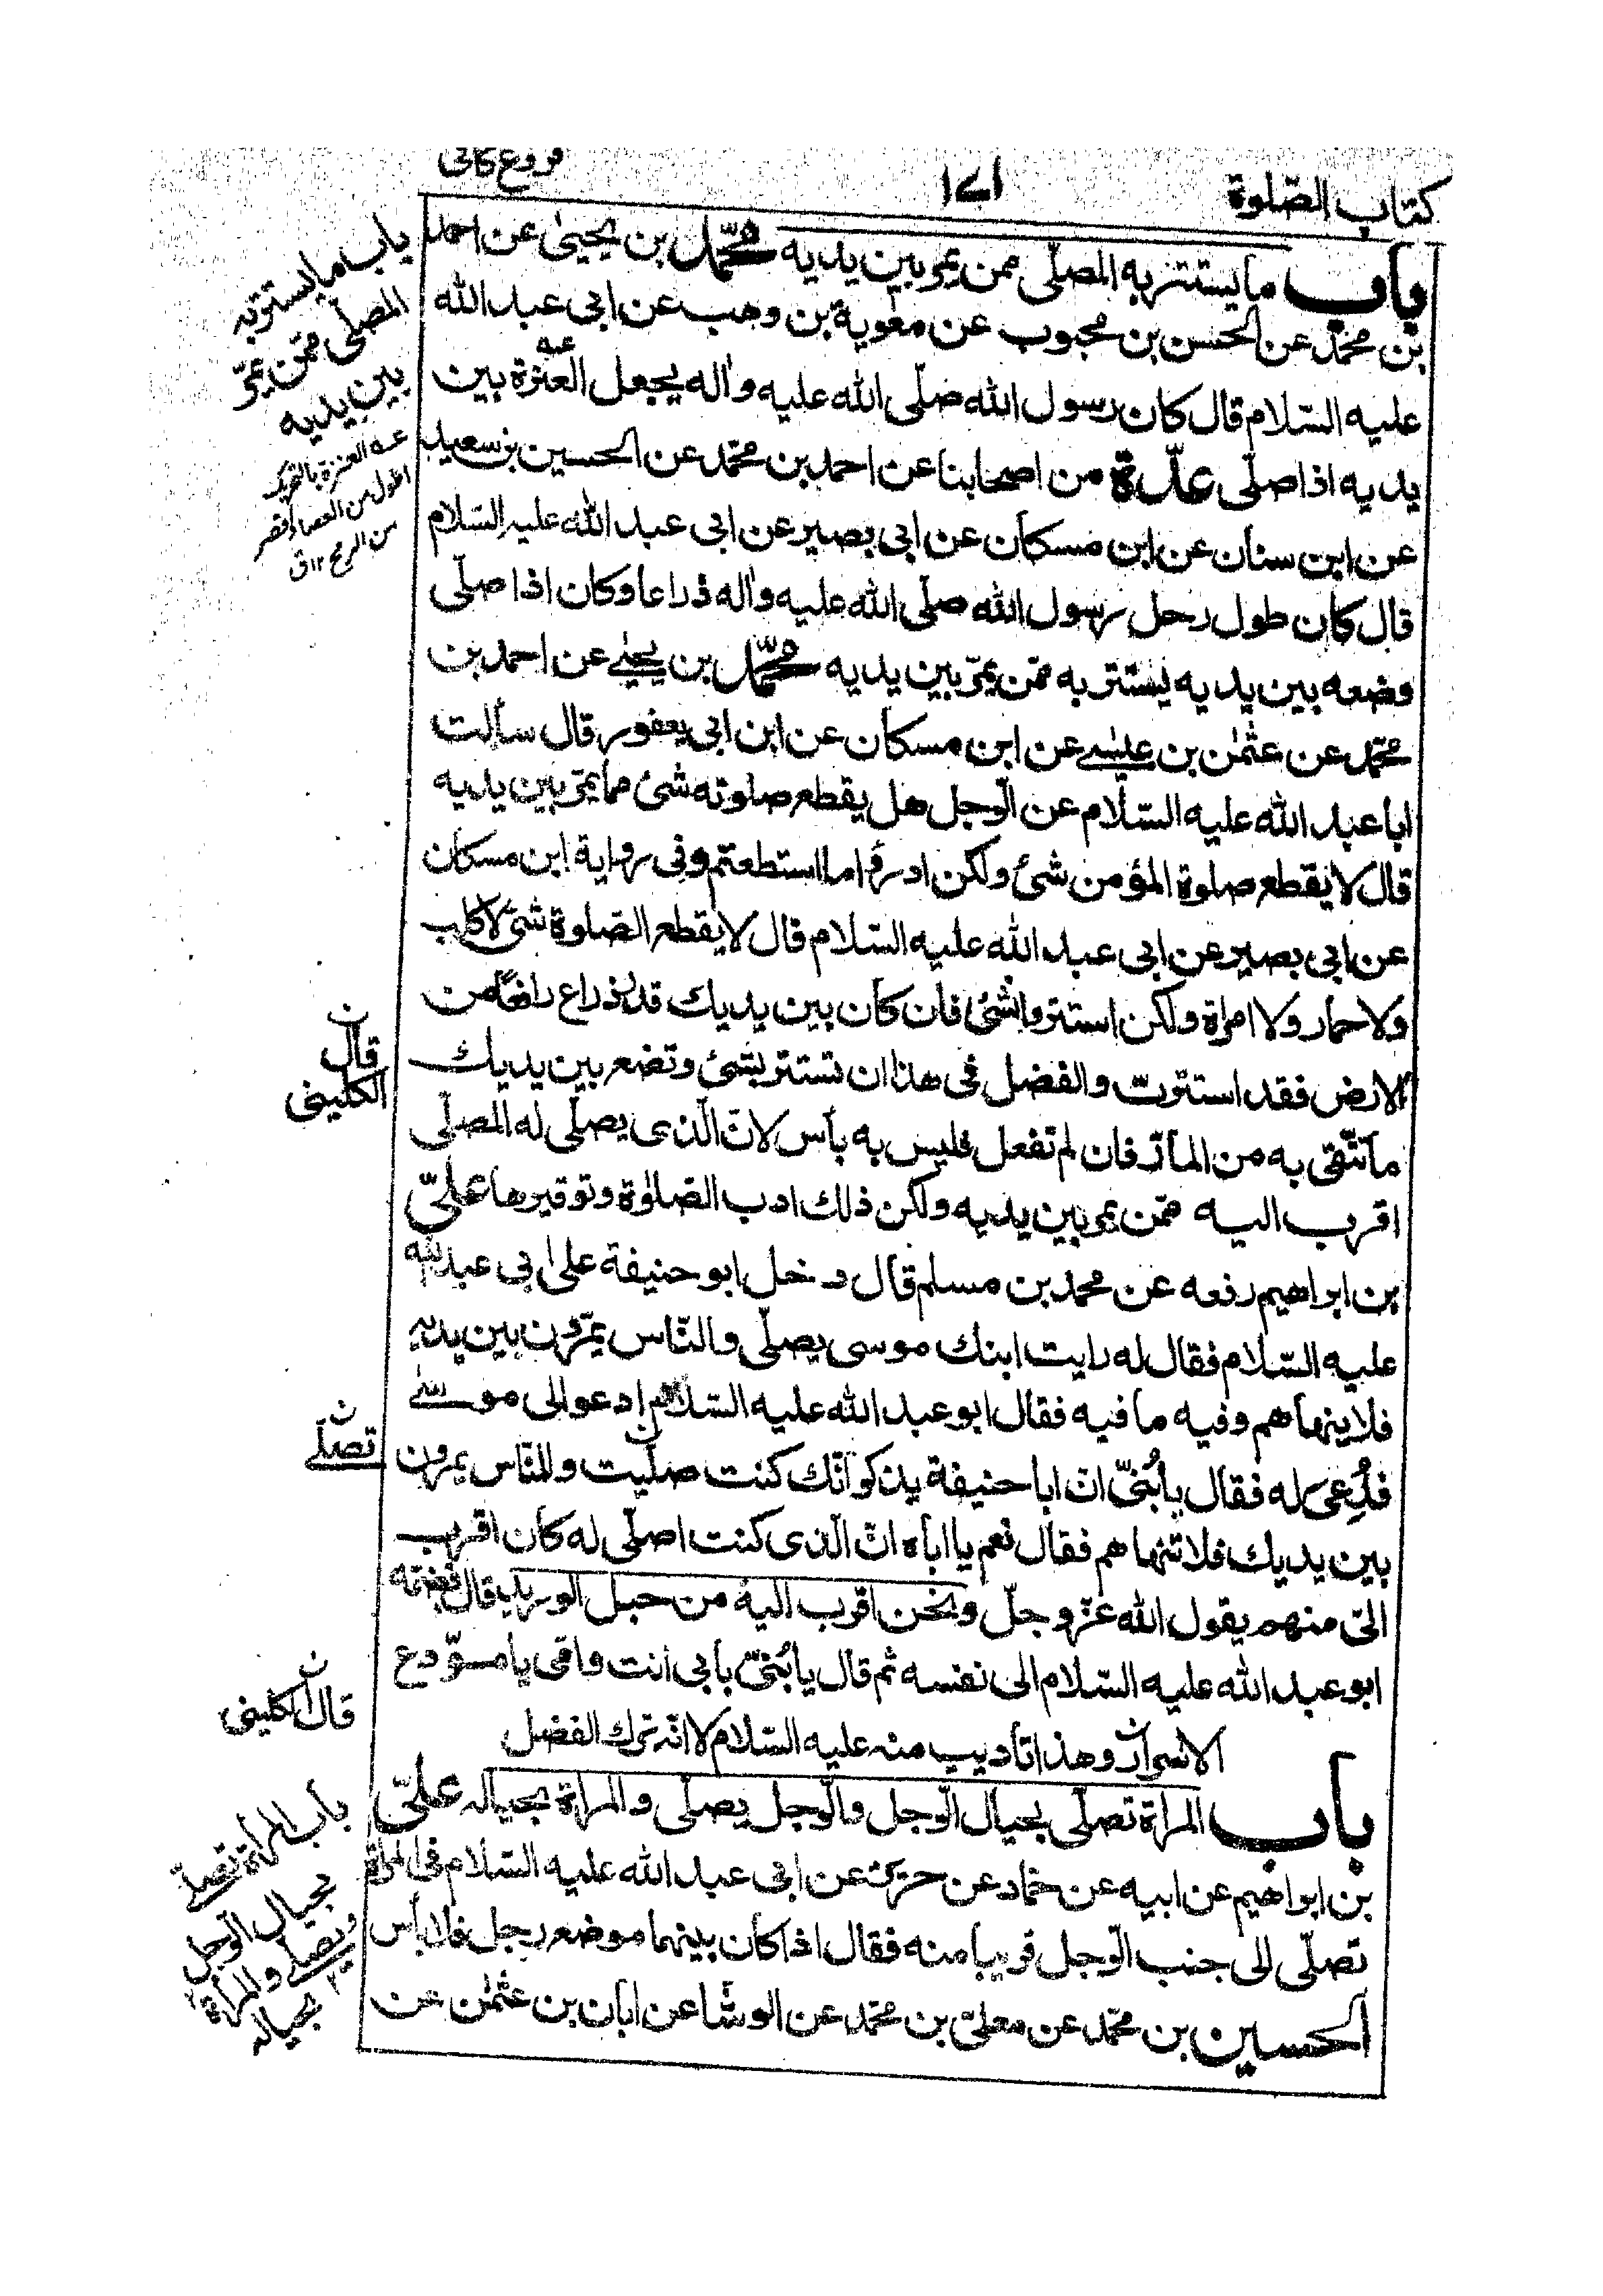 كتاب الصّلوة
١٧١
فروع كافى
باب ما يستتر به المصلّى ممن يمرّ بين يديه محمّد بن يحيىٰ عن احمد
بن محمّد عن الحسن بن محبوب عن معٰوية بن وهب عن ابى عبد الله
عليه السّلام قال كان رسول الله صلّى الله عليه واٰله يجعل العنزة بين
يديه اذا صلّى عدّة من اصحابنا عن احمد بن محمّد عن الحسين بن سعيد
عن ابن سنان عن ابن مسكان عن ابى بصير عن ابى عبد الله عليه السّلام
قال كان طول رحل رسول الله صلّى الله عليه واٰله ذراعا وكان اذا صلّى
وضعه بين يديه يستتر به ممّن يمرّ بين يديه محمّد بن يحيىٰ عن احمد بن
محمّد عن عثمٰن بن عيسىٰ عن ابن مسكان عن ابن ابى يعفور قال سألت
ابا عبد الله عليه السّلام عن الرّجل هل يقطع صلوته شئ مما يمرّ بين يديه
قال لا يقطع صلوة المؤمن شئ ولكن ادرؤا ما استطعتم وفى رواية ابن مسكان
عن ابى بصير عن ابى عبد الله عليه السّلام قال لا يقطع الصّلوة شئ لا كلب
ولا حمار ولا امراة ولكن استتروا بشئ فان كان بين يديك قدر ذراع رافعًا من
الارض فقد استترت والفضل فى هذا ان تستتر بشئ وتضع بين يديك
ما تتّقى به من المارّ فان لم تفعل فليس به بأس لانّ الّذى يصلّى له المصلّى
اقرب اليه ممّن يمر بين يديه ولكن ذلك ادب الصّلوٰة وتوقيرها علىّ
بن ابراهيم رفعه عن محمّد بن مسلم قال دخل ابو حنيفة على ابى عبد الله
عليه السّلام فقال له رايت ابنك موسى يصلّى والنّاس يمرّون بين يديه
فلا ينهاهم وفيه ما فيه فقال ابو عبد الله عليه السّلام ادعوا لى موسىٰ
فدُعِىَ له فقال يا بُنىّ انّ ابا حنيفة يذكر انّك كنت صلّيت والنّاس يمرون
بين يديك فلا تنهاهم فقال نعم يا اباه انّ الّذى كنت اصلّى له كان اقرب
الىّ منهم يقول الله عزّ وجلّ ونحن اقرب اليه من حبل الوريد قال فضمّه
ابو عبد الله عليه السّلام الى نفسه ثم قال يا بُنىّ بابى انت وامّى يا مستودع
الاسرار وهذا تأديب منه عليه السّلام لا انّه ترك الفضل
باب المراة تصلّى بحيال الرّجل والرّجل يصلّى والمراة بحياله علىّ
بن ابراهيم عن ابيه عن حمّاد عن حريز عن ابى عبد الله عليه السّلام فى المراة
تصلّى الى جنب الرّجل قريبا منه فقال اذا كان بينهما موضع رجل فلا بأس
الحسين بن محمّد عن معلىّ بن محمّد عن الوشّا عن ابان بن عثمٰن عن
باب ما يستتر به
المصلّى ممّن يمرّ
بين يديه
عه العنزة بالتحريك
اطول من العصا واقصر
من الرمح ١٢ ق
ن
قال
الكلينى
ن
تصلّى
ن
قال الكلينى
باب المراة تصلّى
بحيال الرّجل
ويصلّى والمراة
بحياله